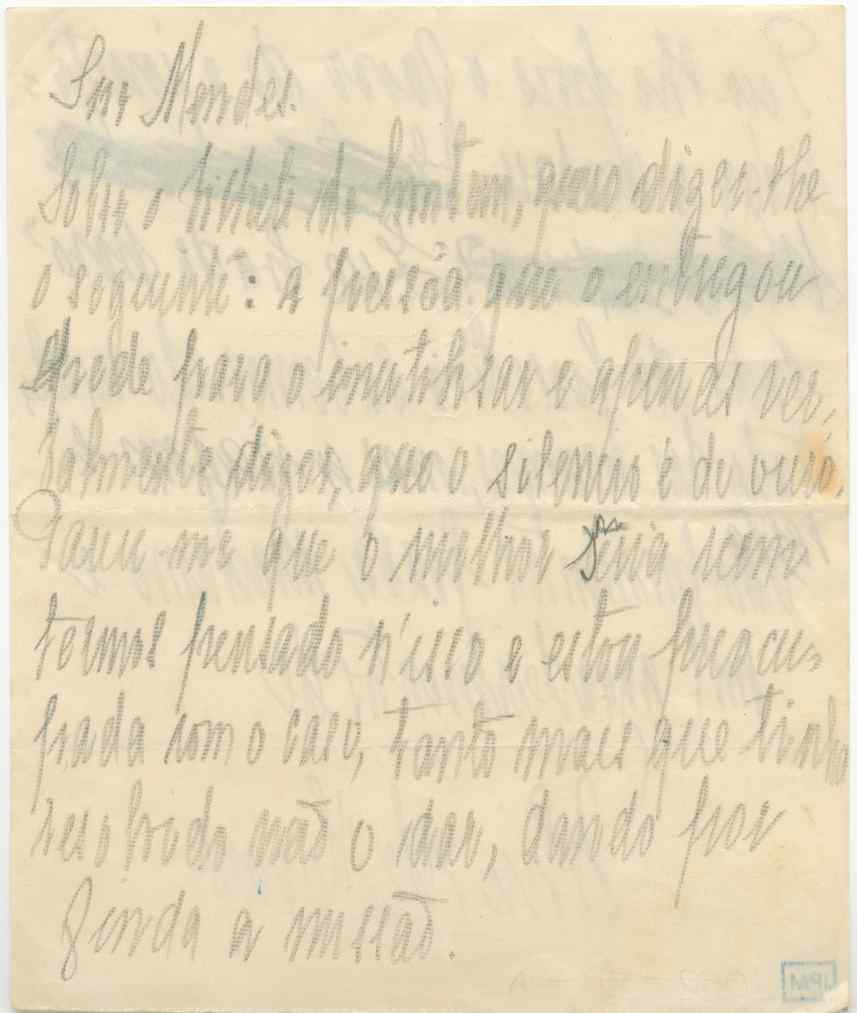 Snr Mendes.
Sobre o bilhete de hontem, quero dizer-lhe
o seguinte: a pessôa que o entregou
pede para o inutilisar e apenas ver,
balmente dizer, que o silencio é de ouro.
Parece-me que o melhor seria nem
termos pensado n'isso e estou preocu-
pada com o caso, tanto mais que tinha
resolvido não o dar, dando por
finda a missão.
JPM